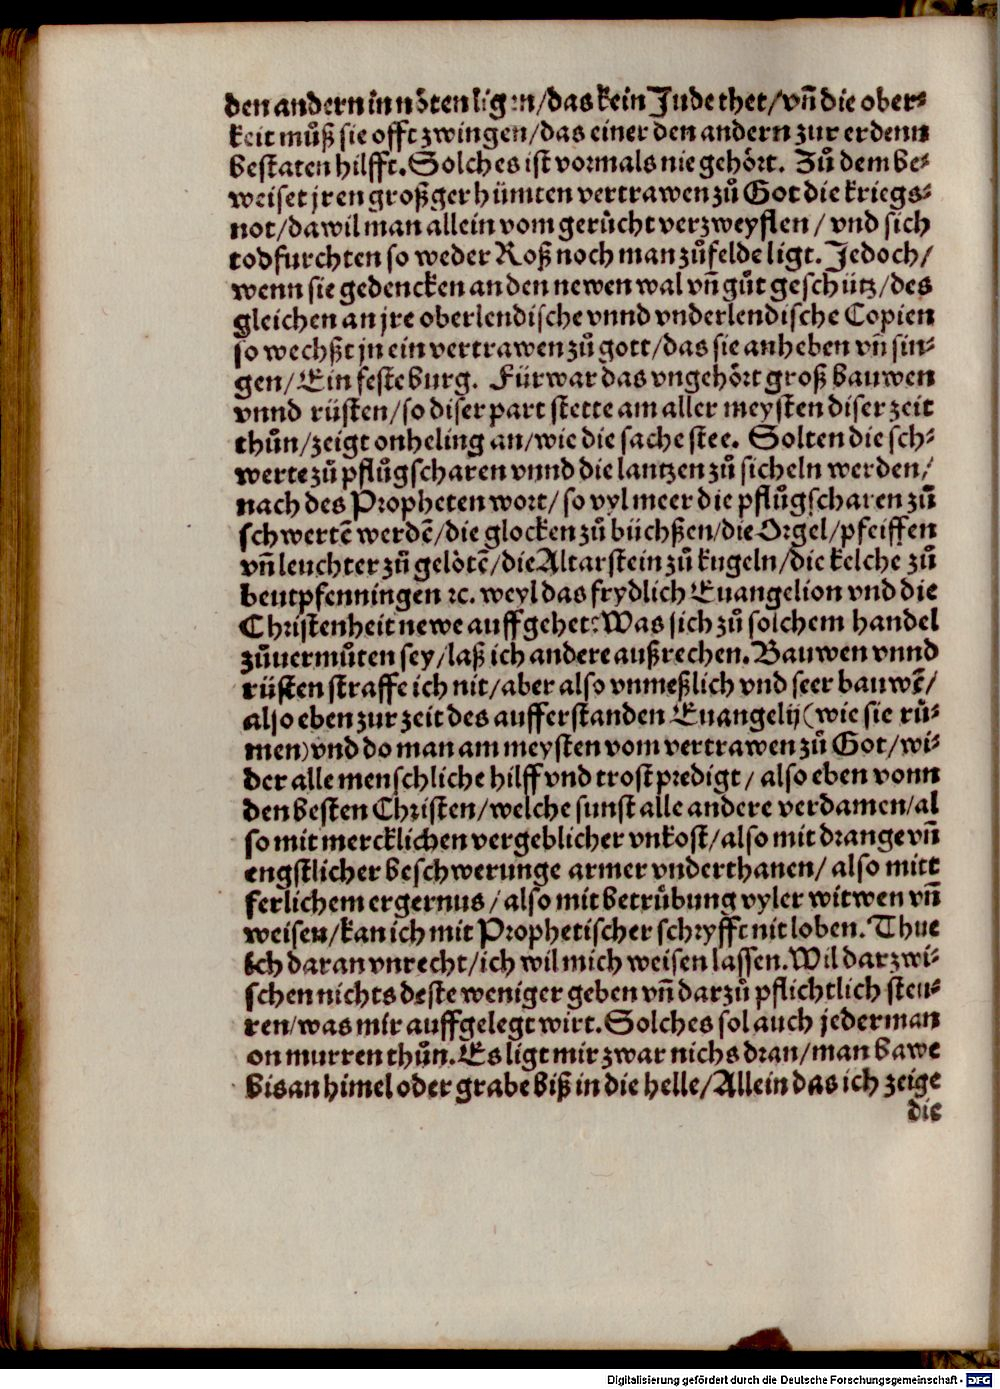 den andern in nöten ligen/das kein Jude thet/vñ die ober⸗
keit můß sie offt zwingen/das einer den andern zur erdenn
bestaten hilfft. Solches ist vormals nie gehört. Zů dem be⸗
weiset jren großgerhümten vertrawen zů Got die kriegs⸗
not/da wil man allein vom gerücht verzweyflen/ vnd sich
todfurchten so weder Roß noch man zů felde ligt. Jedoch/
wenn sie gedencken an den newen wal vñ gůt geschütz/des
gleichen an jre oberlendische vnnd vnderlendische Copien
so wechßt jn ein vertrawen zů gott/das sie anheben vñ sin⸗
gen/Ein feste burg. Fürwar das vngehört groß bauwen
vnnd rüsten/so diser part stette am aller meysten diser zeit
thůn/zeigt onheling an/wie die sache stee. Solten die sch⸗
werte zů pflůgscharen vnnd die lantzen zů sicheln werden/
nach des Propheten wort/so vyl meer die pflůgscharen zů
schwertẽ werdẽ/die glocken zů büchßen/die Orgel/pfeiffen
vñ leuchter zů gelötẽ/die Altarstein zů kugeln/die kelche zů
beutpfenningen ꝛc. weyl das frydlich Euangelion vnd die
Christenheit newe auffgehet? Was sich zů solchem handel
zůuermůten sey/laß ich andere außrechen. Bauwen vnnd
rüsten straffe ich nit/aber also vnmeßlich vnd seer bauwẽ/
also eben zur zeit des aufferstanden Euangelij (wie sie rů⸗
men) vnd do man am meysten vom vertrawen zů Got/wi⸗
der alle menschliche hilff vnd trost predigt/ also eben vonn
den besten Christen/welche sunst alle andere verdamen/al
so mit mercklichen vergeblicher vnkost/also mit drange vñ
engstlicher beschwerunge armer vnderthanen/ also mitt
ferlichem ergernus/ also mit betrübung vyler witwen vñ
weisen/kan ich mit Prophetischer schryfft nit loben. Thue
ich daran vnrecht/ich wil mich weisen lassen. Wil dar zwi⸗
schen nichts deste weniger geben vñ darzů pflichtlich steu⸗
ren/was mir auffgelegt wirt. Solches sol auch jederman
on murren thůn. Es ligt mir zwar nichs dran/man bawe
bis an himel oder grabe biß in die helle/Allein das ich zeige
die
Digitalisierung gefördert durch die Deutsche Forschungsgemeinschaft - DFG